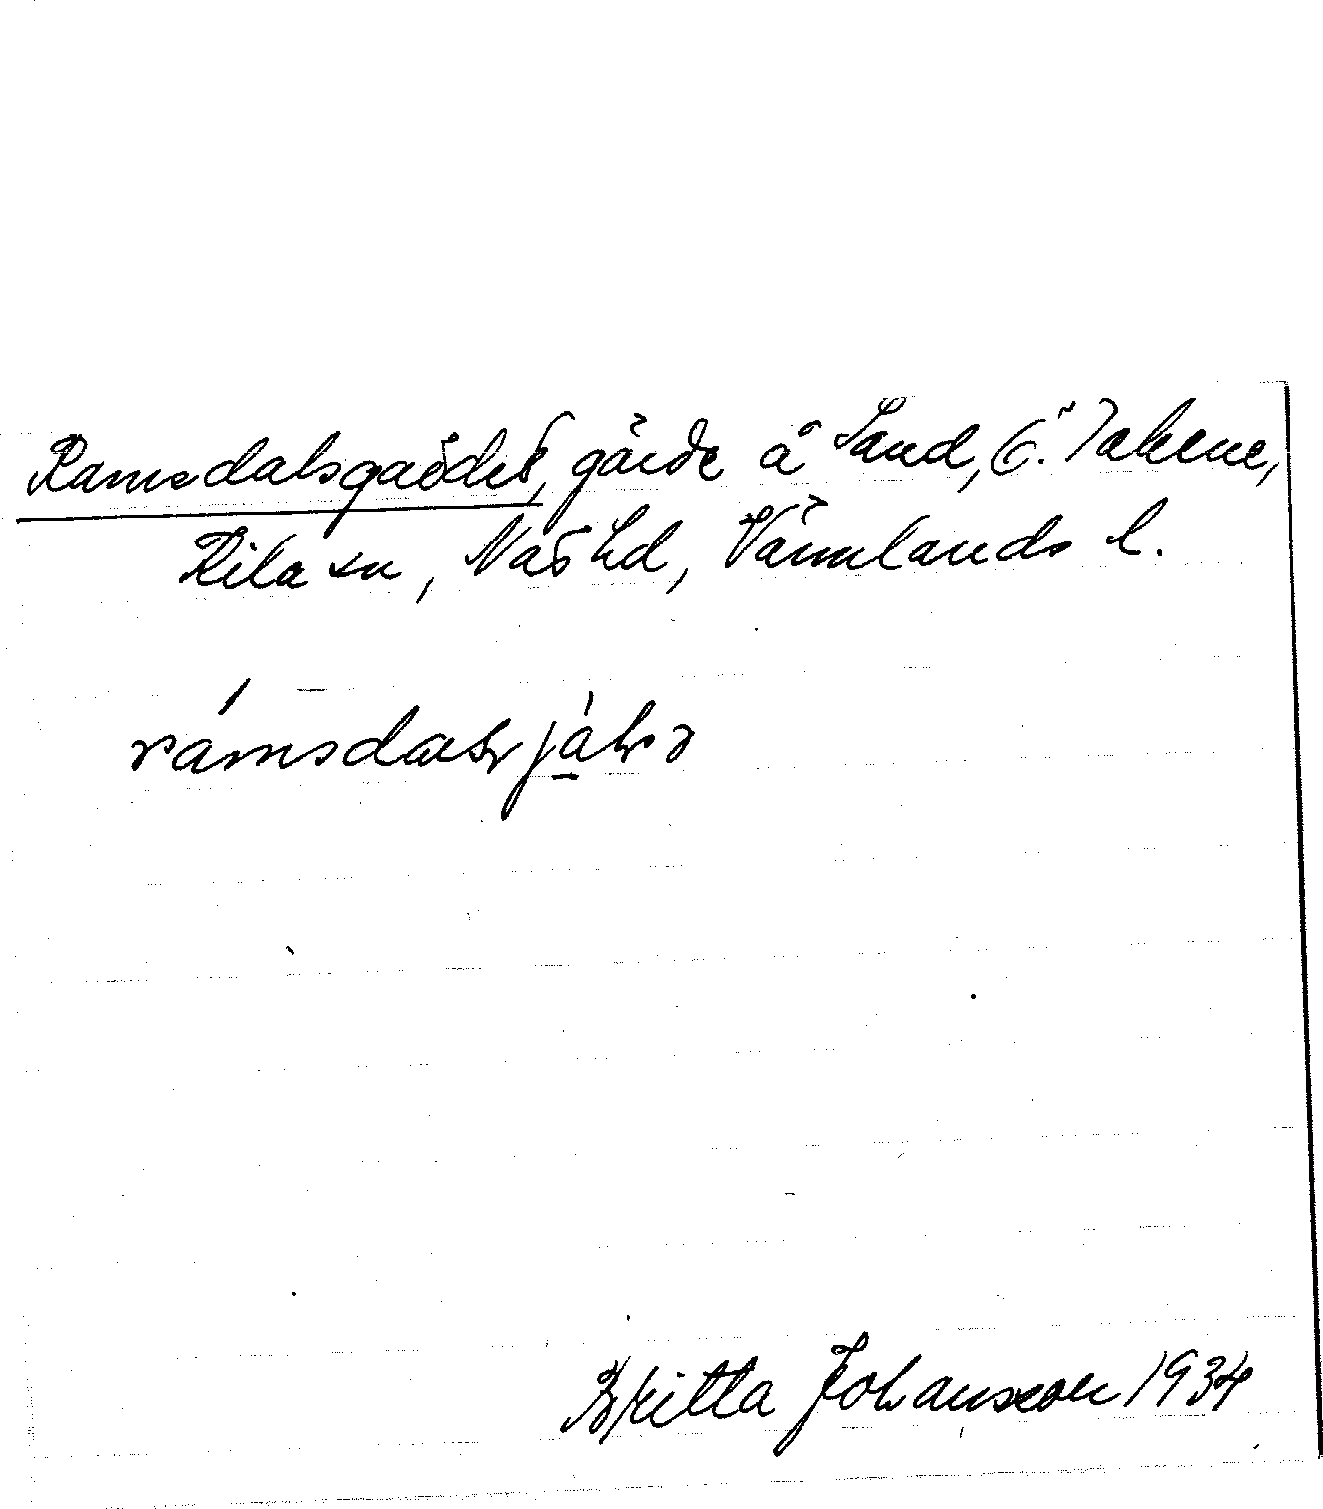 Ramsdalsgärdet, gärde å Sand, Ö. Takene,
Kila sn, Näs hd, Värmlands l.
Britta Johansson 1934